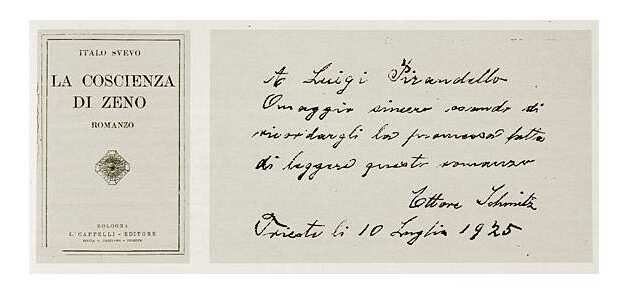 ITALO SVEVO
LA COSCIENZA
DI ZENO
ROMANZO
BOLOGNA
L. CAPPELLI - EDITORE
A Luigi Pirandello
Omaggio sincero osando di
ricordargli la promessa fatta
di leggere questo romanzo
Ettore Schmitz
Trieste li 10 Luglio 1925